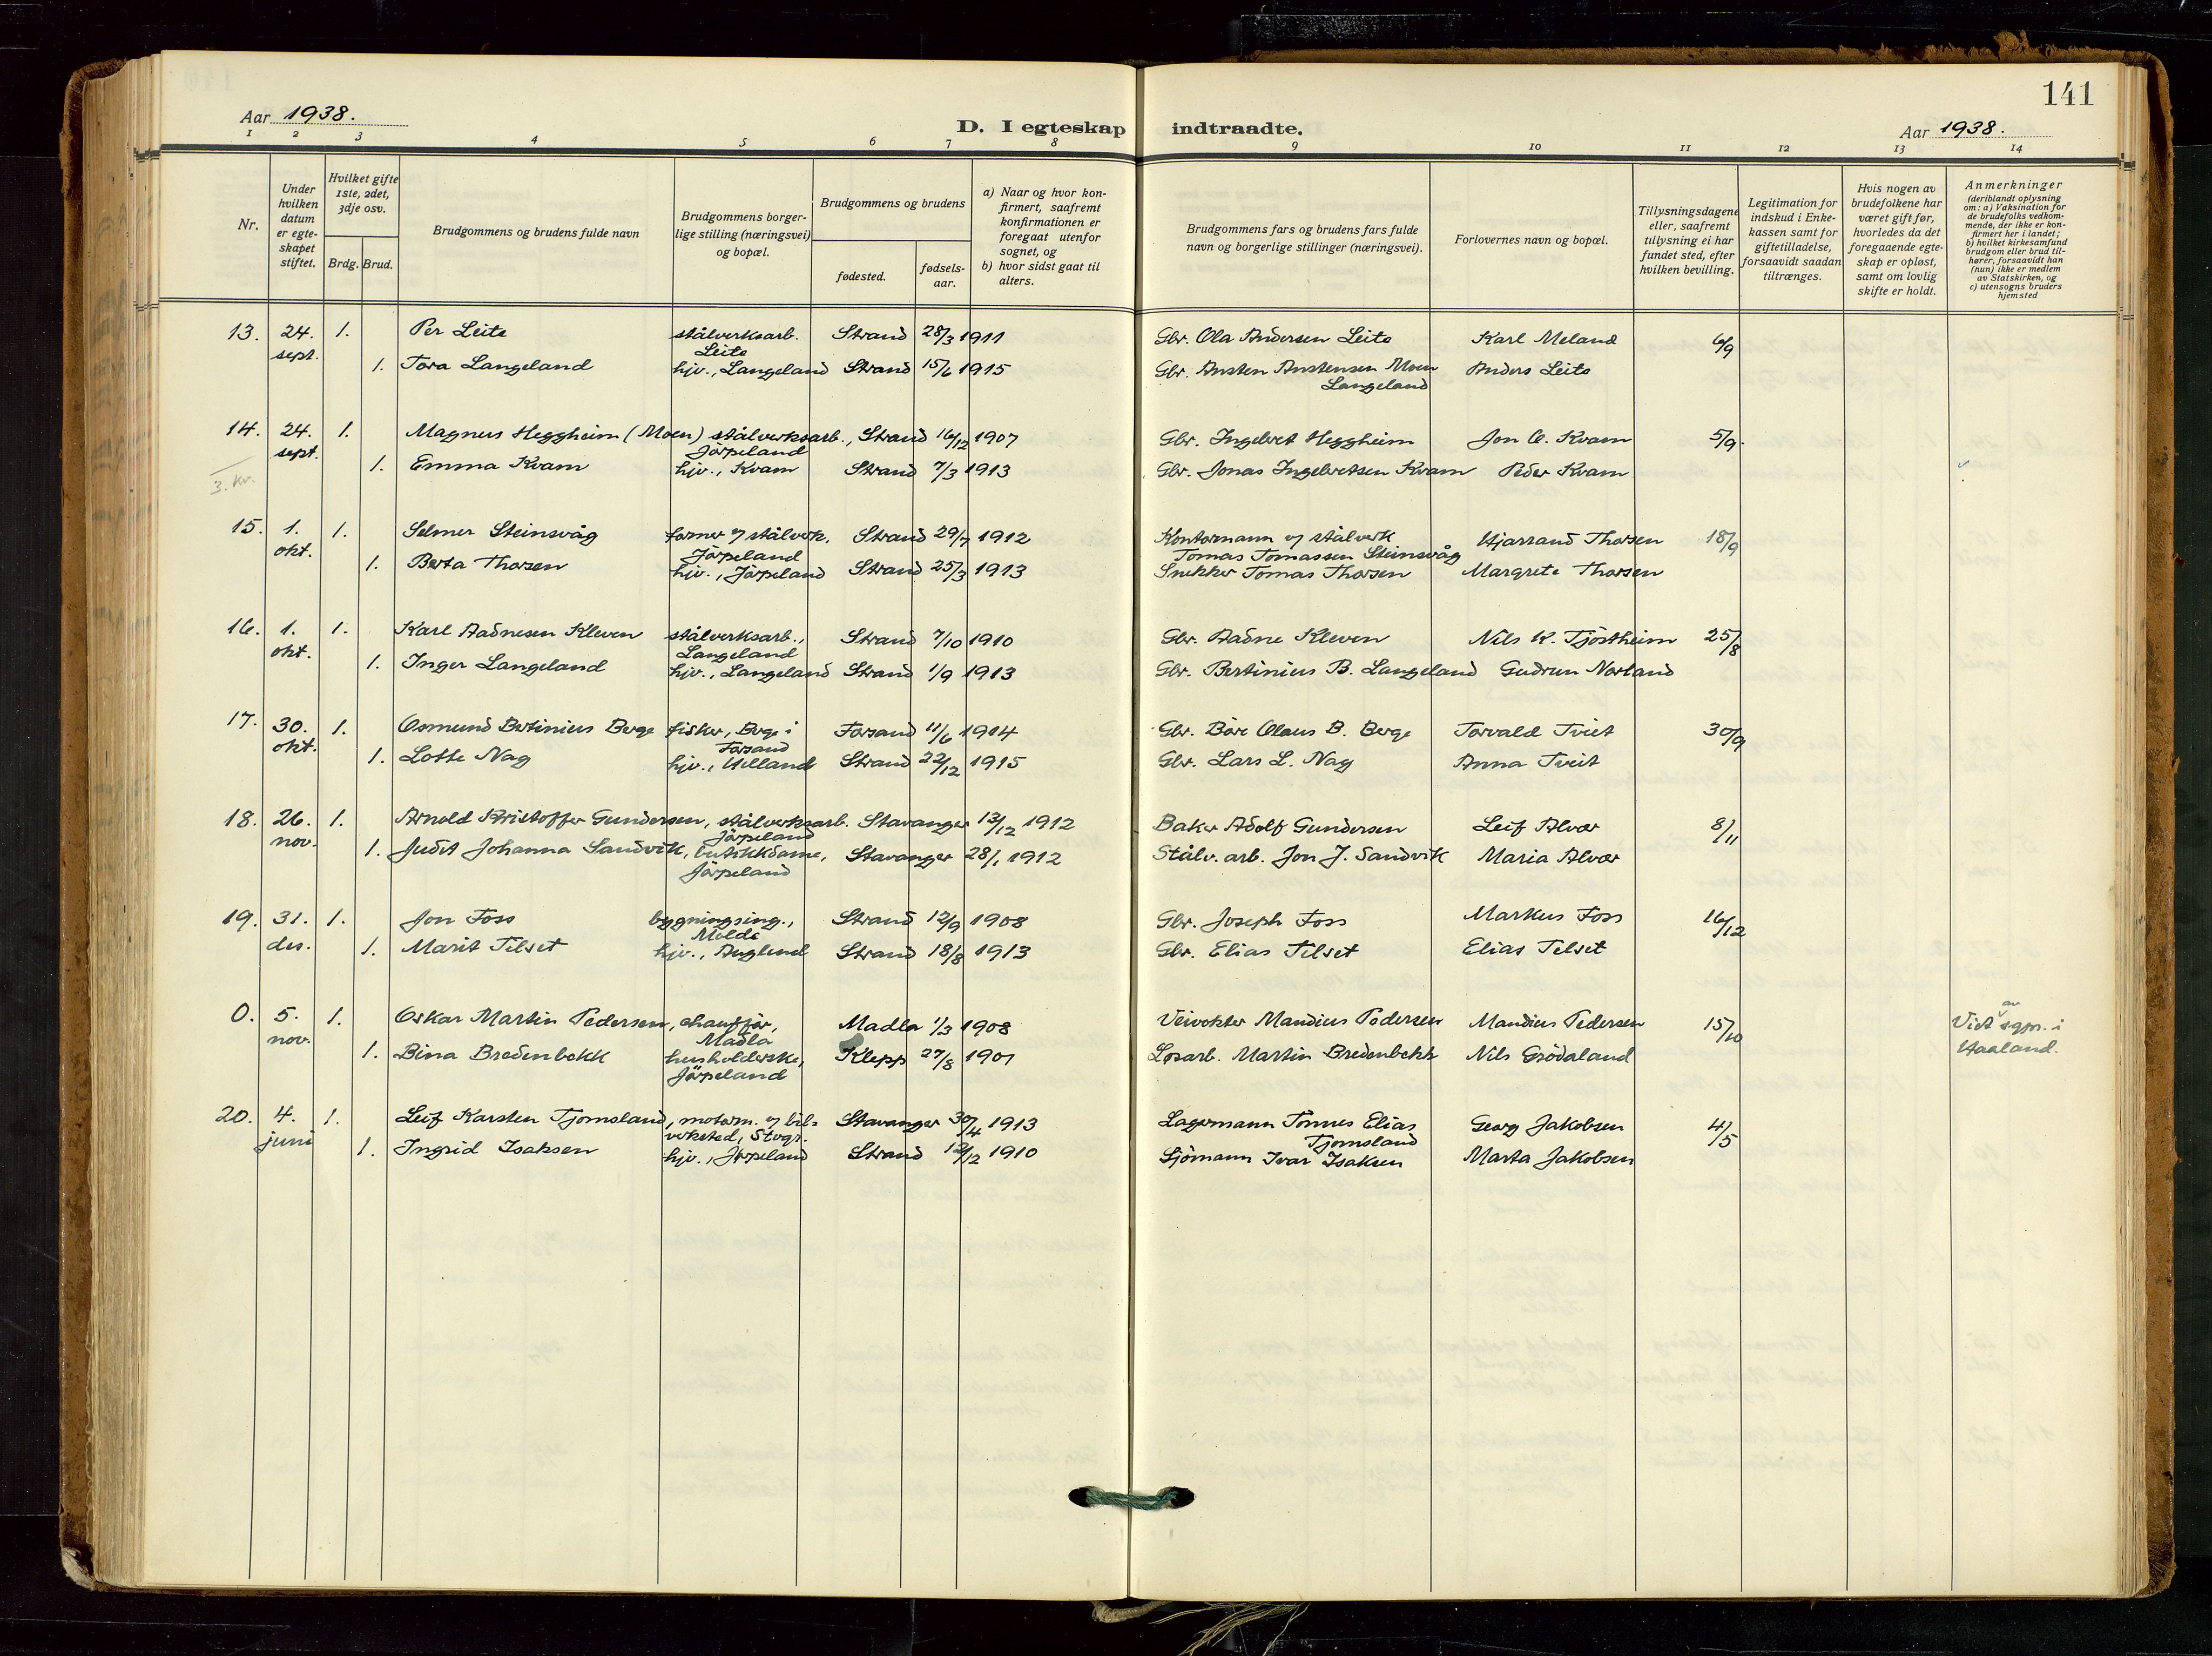 141
Aar 1938.
D. I egteskap indtraadte.
Aar 1938.
1 2 3 4 5 6 7 8 9 10 11 12 13 14
Nr.
Under hvilken datum er egte-skapet stiftet.
Hvilket gifte 1ste, 2det, 3dje osv.
Brdg. Brud.
Brudgommens og brudens fulde navn
Brudgommens borger-lige stilling (næringsvei) og bopæl.
Brudgommens og brudens
fødested.
fødsels-aar.
a) Naar og hvor kon-firmert, saafremt konfirmationen er foregaat utenfor sognet, og
b) hvor sidst gaat til alters.
Brudgommens fars og brudens fars fulde navn og borgerlige stillinger (næringsvei).
Forlovernes navn og bopæl.
Tillysningsdagene eller, saafremt tillysning ei har fundet sted, efter hvilken bevilling.
Legitimation for indskud i Enke-kassen samt for giftetilladelse, forsaavidt saadan tiltrænges.
Hvis nogen av brudefolkene har været gift før, hvorledes da det foregaaende egte-skap er opløst, samt om lovlig skifte er holdt.
Anmerkninger (deriblandt oplysning om: a) Vaksination for de brudefolks vedkom-mende, der ikke er kon-firmert her i landet; b) hvilket kirkesamfund brudgom eller brud til-hører, forsaavidt han (hun) ikke er medlem av Statskirken, og c) utensogns bruders hjemsted
13. 24. sept. 1. Per Leite stålverksarb. Leite Strand 28/3 1911 Gbr. Ola Andersen Leite Karl Meland 6/9
1. Tora Langeland hjv., Langeland Strand 15/6 1915 Gbr. Austen Austensen Moen Langeland Anders Leite
14. 24. sept. 1. Magnus Heggheim (Moen) stålverksarb., Jörpeland Strand 16/12 1907 Gbr. Ingebret Heggheim Jon E. Kvam 5/9.
1. Emma Kvam hjv., Kvam Strand 7/3 1913 Gbr. Jonas Ingebretsen Kvam Peder Kvam
3. kv.
15. 1. okt. 1. Selmer Steinsvåg former v/ stålverk, Jörpeland Strand 29/7 1912 Kontormann v/ stålverk Tomas Tomassen Steinsvåg Hjarrand Thorsen 18/9
1. Berta Thorsen hjv., Jörpeland Strand 25/3 1913 Snekker Tomas Thorsen Margrete Thorsen
16. 1. okt. 1. Karl Aadnesen Kleven stålverksarb., Langeland Strand 7/10 1910 Gbr. Aadne Kleven Nils K. Tjöstheim 25/8
1. Inger Langeland hjv., Langeland Strand 1/9 1913 Gbr. Bertinius B. Langeland Gudrun Norland
17. 30. okt. 1. Osmund Bertinius Berge fisker, Berge i Forsand Forsand 11/6 1914 Gbr. Böre Olaus B. Berge Torvald Tveit 30/9
1. Lotte Nag hjv., Helland Strand 22/12 1915 Gbr. Lars L. Nag Anna Tveit
18. 26. nov. 1. Arnold Kristoffer Gundersen, stålverksarb. Jörpeland Stavanger 13/12 1912 Baker Adolf Gundersen Leif Alvær 8/11
1. Judit Johanna Sandvik, butikkdame, Jörpeland Stavanger 28/1 1912 Stålv. arb. Jon J. Sandvik Maria Alvær
19. 31. des. 1. Jon Foss bygningsing., Molde Strand 12/9 1908 Gbr. Joseph Foss Markus Foss 16/12
1. Marit Tilset hjv., Auglend Strand 18/8 1913 Gbr. Elias Tilset Elias Tilset
0. 5. nov. 1. Oskar Martin Pedersen, chauffør, Madla Madla 1/3 1908 Veivokter Mandius Pedersen Mandius Pedersen 15/10 Viet av sgpr. i Haaland.
1. Bina Bredenbekk husholderske, Jörpeland Klepp 27/8 1901 Løsarb. Martin Bredenbekk Nils Grödaland
20. 4. juni 1. Leif Karsten Tjomsland, motorm. v/ bil-verksted, Stvgr. Stavanger 30/4 1913 Lagermann Tönnes Elias Tjomsland Georg Jakobsen 4/5
1. Ingrid Isaksen hjv., Jörpeland Strand 12/12 1910 Sjömann Ivar Isaksen Marta Jakobsen